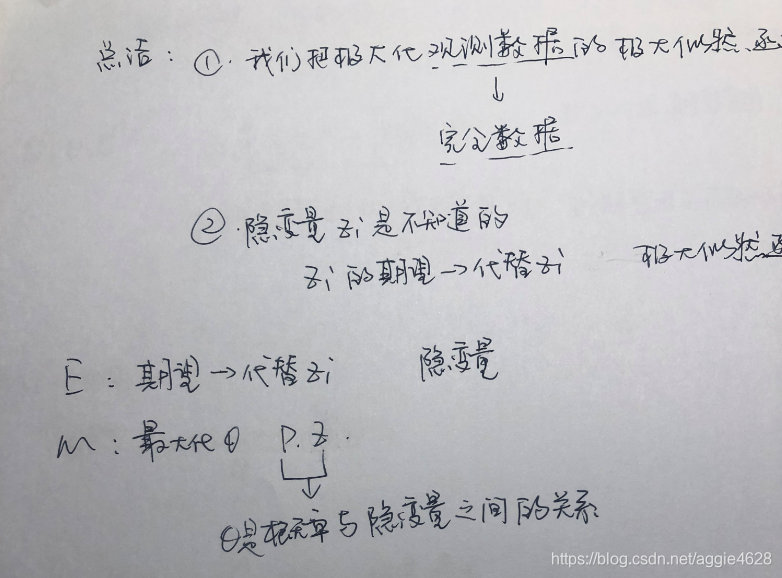 总结：①.我们把极大化观测数据的极大似然函
↓
完全数据
②.隐变量 zi 是不知道的
zi 的期望→代替 zi 极大似然函
E：期望→代替 zi 隐变量
M：最大化 θ P.Z.
θ是概率与隐变量之间的关系
https://blog.csdn.net/aggie4628